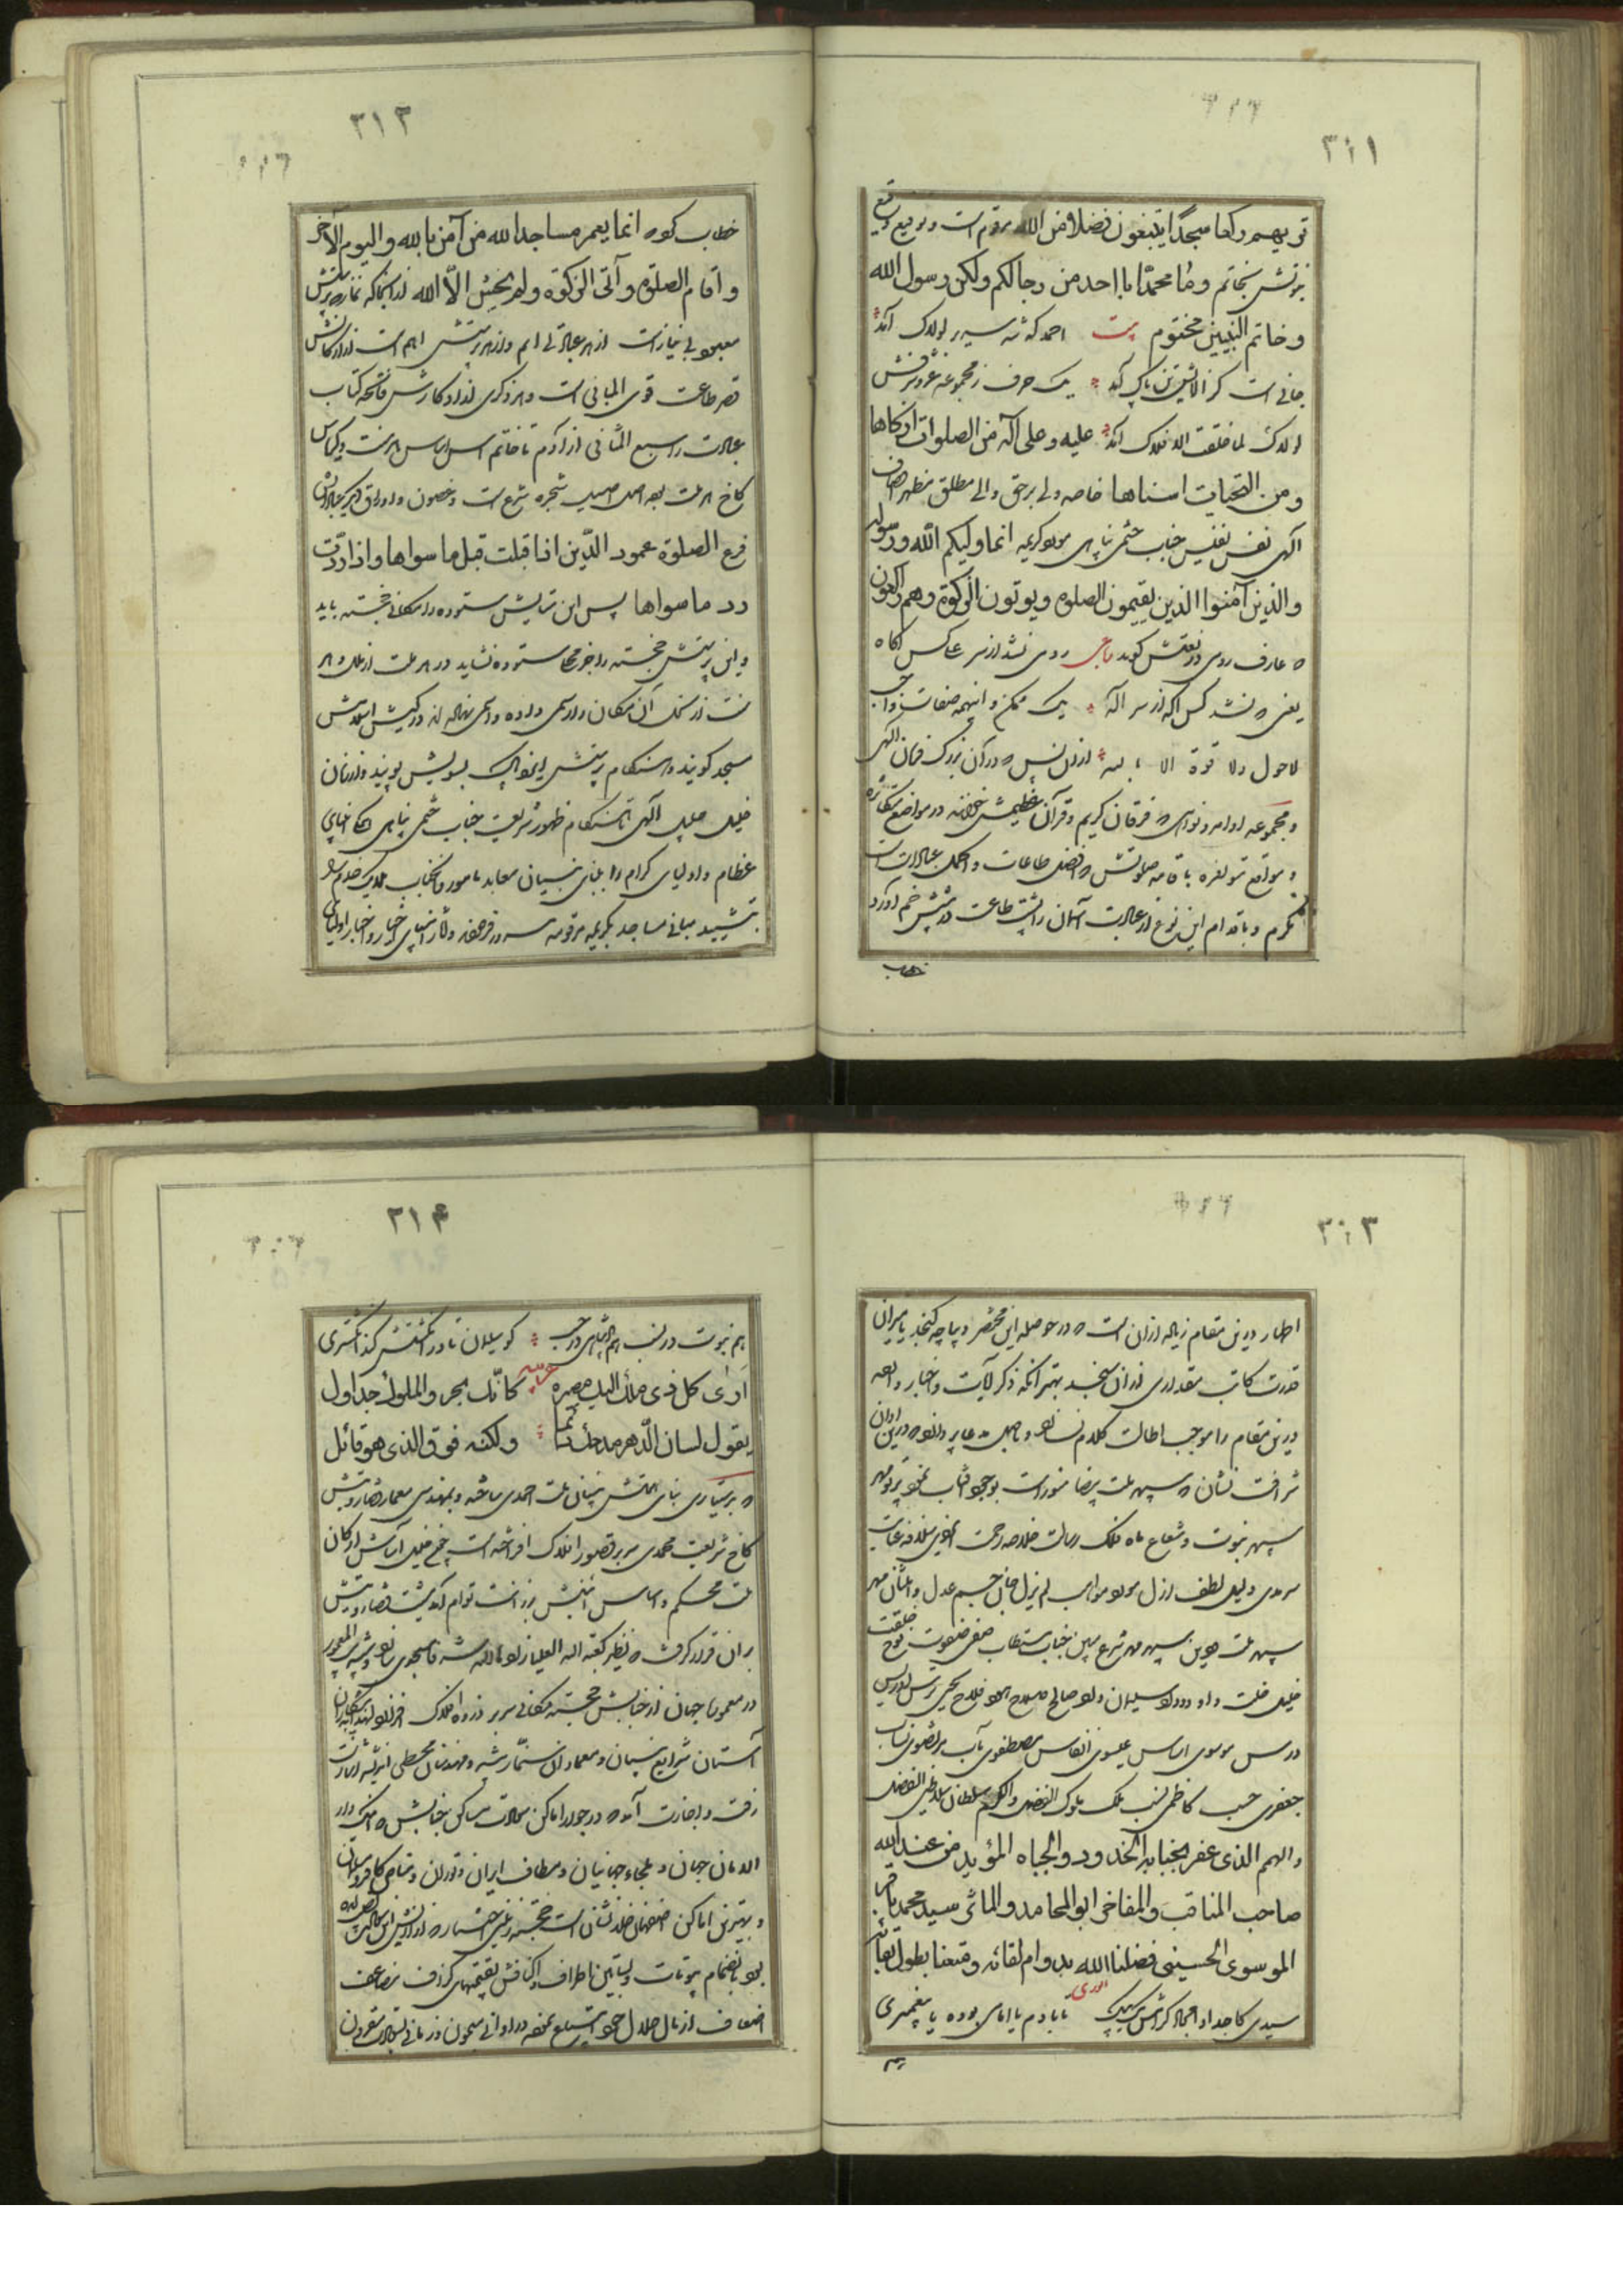 ۳۱۱
تریهم رکعا سجدا یبتغون فضلا من الله مرقوم است و توقیع وقیع
نبوتش بخاتم وما محمد ابا احد من رجالکم ولکن رسول الله
وخاتم النبیین مختوم بیت احمد که شه سریر لولاک آمد
جانی است کز الایش تن پاک آمد یک حرف ز مجموعه عز و شرفش
لولاک لما خلقت الافلاک آمد علیه وعلی آله من الصلوات ازکاها
ومن التحیات اسناها خاصه ولی برحق والی مطلق مظهر اوصاف
الهی نفس نفیس جناب ختمی پناهی مولود کریمه انما ولیکم الله ورسوله
والذین آمنوا الذین یقیمون الصلوة ویوتون الزکوة وهم راکعون
که عارف رومی در نعتش گوید رباعی رومی نشد از سر علی کس آگاه
یعنی که نشد کس آگه از سر اله یک ممکن و اینهمه صفات واجب
لا حول ولا قوة الا بالله ازان پس که در آن بزرگ فرمان الهی
و مجموعه اوامر و نواهی که فرقان کریم و قرآن عظیمش خوانند در مواضع متکاثره
و مواقع متوافره باقامه صلوتش که افضل طاعات و اکمل عبادات است
مکرم و باقدام این نوع از عبادت آسمان را پشت طاعت در پیش خم آورد
خطاب
۳۱۲
خطاب کوه انما یعمر مساجد الله من آمن بالله والیوم الآخر
واقام الصلوة وآتی الزکوة ولم یخش الا الله از آنجا که نماز که پرستش
معبود بی نیاز است از هر عبادتی اتم و از هر پرستش اهم است از ارکانش
قصر طاعت قوی المبانی است و از ذکری از اذکارش فاتحه کتاب
عبادت را سبع المثانی از آدم تا خاتم اس اساس هر ملت و کریاس
کاخ هر ملت بعد اصل اصیل شجره شرع است و غصون و اوراق دیگر عباداتش
فرع الصلوة عمود الدین اذا قبلت قبل ما سواها واذا ردت
رد ما سواها پس این ستایش ستوده را مکانی خجسته باید
و این پرستش خجسته را جز محلی ستوده نشاید در هر ملت از ملل و هر
سنت از سنن آن مکان را رسمی داده و اسمی نهاده اند در کیش اسلامش
مسجد گویند و هنگام پرستش ایزد پاک بسویش پویند و از زمان
خلیل جلیل الهی تا هنگام ظهور شریعت جناب ختمی پناهی انبیای
عظام و اولیای کرام را بنای بنیان معابد مامور و آنجناب
بتشیید مبانی مساجد بکریمه مرقومه مسرور فرموده و آثار انبیای اخیار و اخبار اولیای
۳۱۳
اطهار درین مقام زیاده ازان است که در حوصله این مختصر دیباچه گنجد یا میزان
قدرت کاتب مقداری ازان سنجد بهتر آنکه ذکر آیات و اخبار وارده
درین مقام را موجب اطالت کلام نساخته و باصل مدعا پردازد که درین اوان
شرافت نشان که سپهر ملت بیضا منور است بوجود آفتاب نمود پرتو مهر
سپهر نبوت و شعاع ماه فلک رسالت خلاصه رحمت ایزدی سلاله عنایت
سرمدی دلیل لطف ازل مولود مواهب لم یزل جان جسم عدل و احسان مهر
سپهر ملت و دین سپهر مهر شرع مبین جناب مستطاب صفی صفوت نوح خلقت
خلیل خلت داود درود سلیمان داد صالح صلاح هود فلاح یحیی ترس ادریس
درس موسوی اساس عیسوی انفاس مصطفوی مآب مرتضوی نصاب
جعفری حسب کاظمی نسب ملک ملوک الفضل والکرم سلطان سلاطین الفضل
والهمم الذی عفر بجنابه الخدود والجباه المؤید من عند الله
صاحب المناقب والمفاخر ابو المحامد والمآثر سید محمد باقر
الموسوی الحسینی فضلنا الله بدوام لقائه ومتعنا بطول بقائه
سیدی کاجداد امجاد کرامش یک بیک انوری تا بآدم یا امامی بوده یا پیغمبری
هم
۳۱۴
هم نبوت در نسب هم پادشاهی در حسب کو سلیمان تا در انگشتش کند انگشتری
اری کل ذی ملک الیک مصیره عربیه کانک بحر والملوک جداول
یقول لسان الدهر مدحک دائما ولکنه فوق الذی هو قائل
که بدستیاری بنای همتش بنیان ملت احمدی ساخته و بمهندسی معمار رویتش
کاخ شریعت محمدی سر بر قصور افلاک افراخته است چون خلیل آسایش ارکان
ملت محکم و اساس ابنیتش برزانت توام آمد مشیت قضا رویتش
بران قرار گرفت که نظیر کعبة الله العلیا زاد الله شرفا مسجدی نماید و شبیه بیت المعمور
در معموره جهان از جنابش خجسته مکانی سر بر زده افلاک افرازد لهذا پیشکاران
آستان شرایع بنیان و معماران سنمار پیشه و مهندسان مجسطی اندیشه اشارت
رفت و اجازت آمد که در جوار اماکن سعادت مساکن جنابش که اینک دار
الامان جهان و ملجاء جهانیان و مطاف ایران و توران و مناص کافه مسلمان
و بهترین اماکن اصفهان خلد نشان است خجسته زمینی اختیار
بود بانضمام بیوتات و بساتین اطراف و اکنافش بقیمتهای گزاف بضاعف
اضعاف از مال حلال خود ابتیاع نموده در اوانی میمون و زمانی بسعادت مقرون